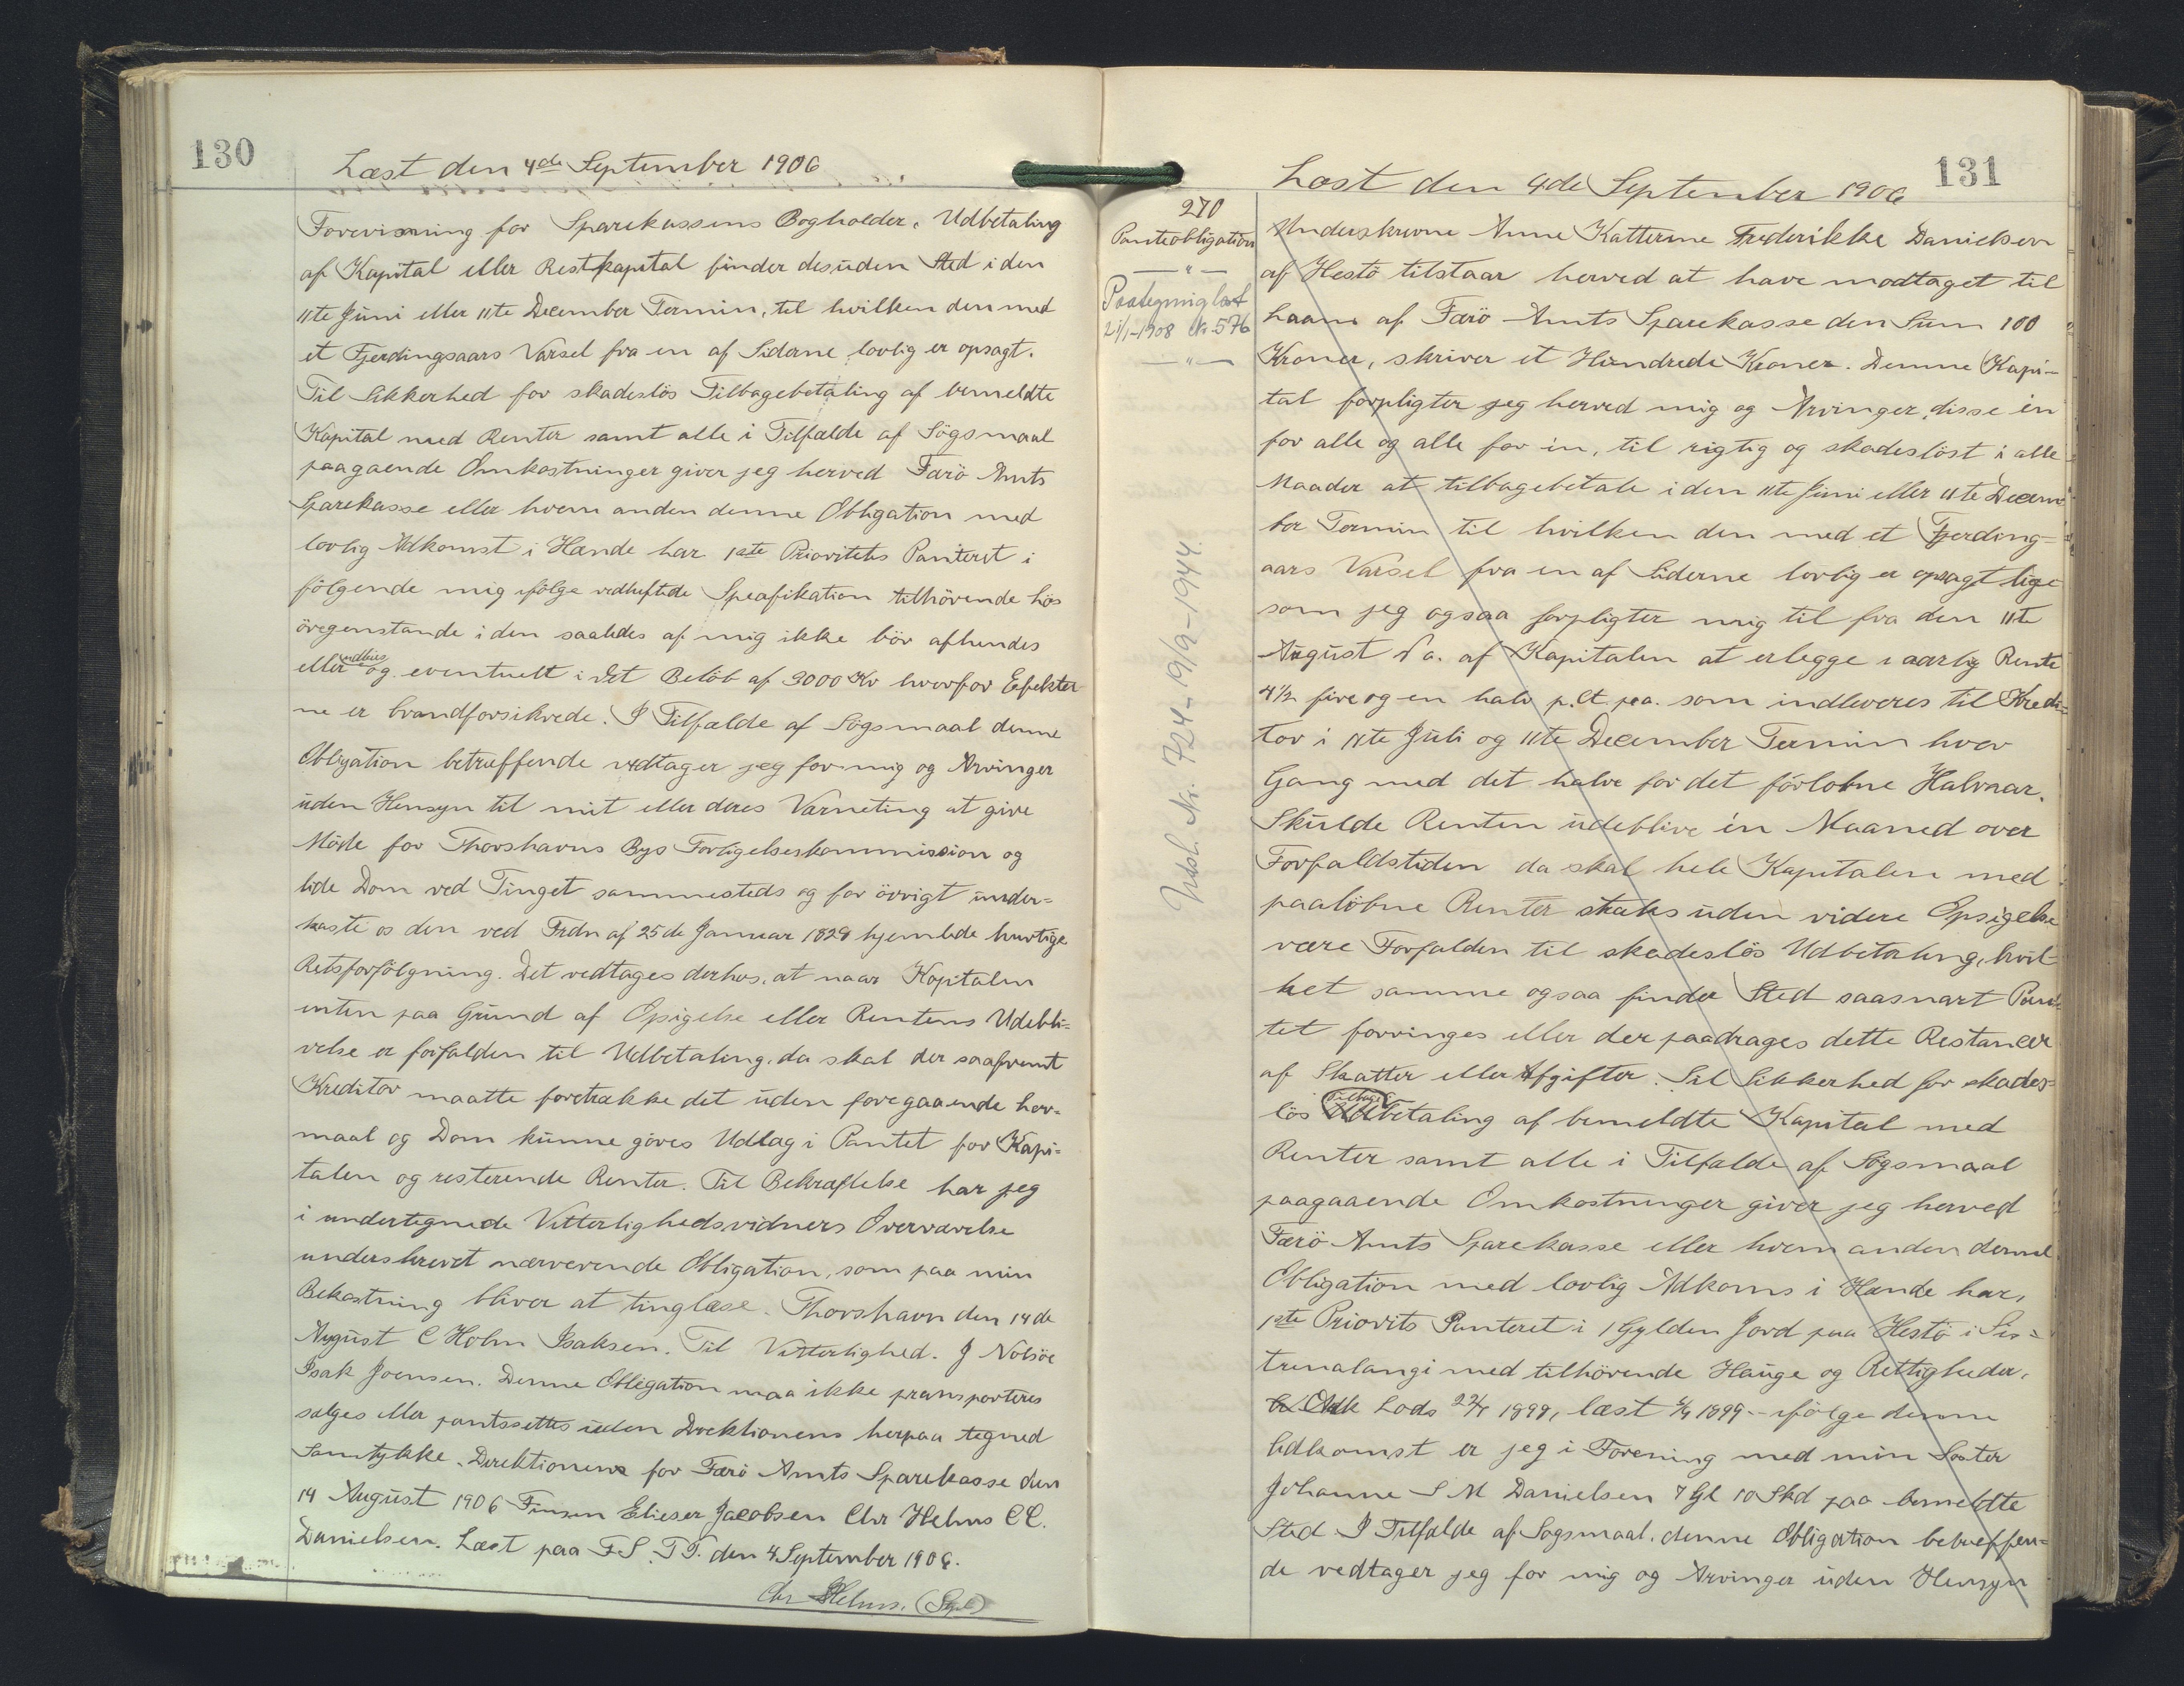 130
Læst den 4de September 1906
Forevisning for Sparekassens Bogholder. Udbetaling
af Kapital eller Restkapital finder desuden Sted i den
11te Juni eller 11te December Termin, til hvilken den med
et Fjerdingsaars Varsel fra en af Siderne lovlig er opsagt.
Til Sikkerhed for skadeslös Tilbagebetaling af bemeldte
Kapital med Renter samt alle i Tilfælde af Sögsmaal
paagaende Omkostninger giver jeg herved Færö Amts
Sparekasse eller hvem anden denne Obligation med
lovlig Adkomst i Hænde har 1ste Prioritets Panteret i
fölgende mig ifölge vedheftede Specifikation tilhörende hös
öregenstande i den saaledes af mig ikke bör afhendes
eller udleies og eventuelt i det Belöb af 3000 Kr hvorfor Efekter
ne er brandforsikrede. I Tilfælde af Sögsmaal denne
Obligation betræffende vedtager jeg for mig og Arvinger
uden Hensyn til mit eller deres Værneting at give
Möde for Thorshavns Bys Forligelseskommission og
lide Dom ved Tinget sammesteds og for övrigt under-
kaste os den ved Frdn af 25de Januar 1828 hjemlede hurtige
Retsforfölgning. Det vedtages derhos, at naar Kapitalen
enten paa Grund af Opsigelse eller Rentens Udebli-
velse er forfalden til Udbetaling, da skal der saafremt
Kreditor maatte foretrække det uden foregaaende Lov-
maal og Dom kunne göres Udlæg i Pantet for Kapi-
talen og resterende Renter. Til Bekræftelse har jeg
i undertegnede Vitterlighedsvidners Overværelse
underskrevet nærværende Obligation, som paa min
Bekostning bliver at tinglæse. Thorshavn den 14de
August C Holm Isaksen. Til Vitterlighed. J Nolsöe
Isak Joensen. Denne Obligation maa ikke transporteres
sælges eller pantsættes uden Direktionens herpaa tegned
Samtykke. Direktionen for Færö Amts Sparekasse den
14 August 1906 Finsen Elieser Jacobsen Chr Helms CC.
Danielsen. Læst paa F S. T T. den 4 September 1906.
Chr Helms. (Sgd)
131
Læst den 4de September 1906
270
Panteobligation
— " —
Paategning læst
21/1-1908 Nr. 576
— " —
Udsl. Nr. 724 - 19/9-1944.
Underskrevne Anne Katterine Frederikke Danielsen
af Hestö tilstaar herved at have modtaget til
Laans af Færö Amts Sparekasse den Sum 100
Kroner, skriver et Hundrede Kroner. Denne Kapi-
tal forpligter jeg herved mig og Arvinger, disse én
for alle og alle for én, til rigtig og skadeslöst i alle
Maader at tilbagebetale i den 11te Juni eller 11te Decem
ber Termin til hvilken den med et Fjerding-
aars Varsel fra en af Siderne lovlig er opsagt lige
som jeg ogsaa forpligter mig til fra den 11te
August d a. af Kapitalen at erlegge i aarlig Rente
4 1/2 fire og en halv p. Ct. p.a. som indleveres til Kredi-
tor i 11te Juli og 11te December Termin hver
Gang med det halve for det förlobne Halvaar.
Skulde Renten udeblive én Maaned over
Forfaldstiden da skal hele Kapitalen med
paalöbne Renter straks uden videre Opsigelse
være Forfalden til skadeslös Udbetaling, hvil
ket samme ogsaa finder Sted saasnart Pan-
tet forringes eller der paadrages dette Restancer
af Skatter eller Afgifter. Til Sikkerhed for skades-
lös Tilbagebetaling af bemeldte Kapital med
Renter samt alle i Tilfælde af Sögsmaal
paagaaende Omkostninger giver jeg herved
Færö Amts Sparekasse eller hvem anden denne
Obligation med lovlig Adkoms i Hænde har,
1ste Priorits Panteret i 1 Gylden Jord paa Hestö i Sis-
trenalangi med tilhörende Hauge og Rettigheder.
Lods 1898, læst 1899 - ifölge denne
Adkomst er jeg i Forening med min Söster
Johanne S M Danielsen 7 Gl 10 Skd paa bemeldte
Sted I Tilfælde af Sögsmaal denne Obligation betreffen-
de vedtager jeg for mig og Arvinger uden Hensyn